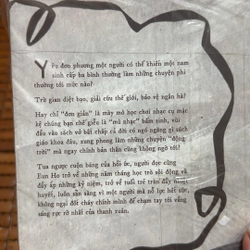 Yêu đơn phương một người có thể khiến một nam
sinh cấp ba bình thường làm những chuyện phi
thường tới mức nào?
Trừ gian diệt bạo, giải cứu thế giới, bảo vệ ngân hà?
Hay chỉ "đơn giản" là mày mò học chơi nhạc cụ mặc
kệ chúng bạn chế giễu là "mù nhạc" bẩm sinh, vùi
đầu vào sách vở bất chấp cả đời có ngó ngàng gì sách
giáo khoa đâu, xung phong làm những chuyện "động
trời" mà ngay chính bản thân cũng không ngờ tới?
Tua ngược cuộn băng của hồi ức, người đọc cùng
Em Họ trở về những năm tháng học trò sôi động và
đầy ắp những kỷ niệm, trở về tuổi trẻ tràn đầy nhiệt
huyết, luôn sẵn sàng vì một người mà nỗ lực hết sức,
không ngại đốt cháy chính mình để chạm tay tới vầng
sáng rực rỡ nhất của thanh xuân.